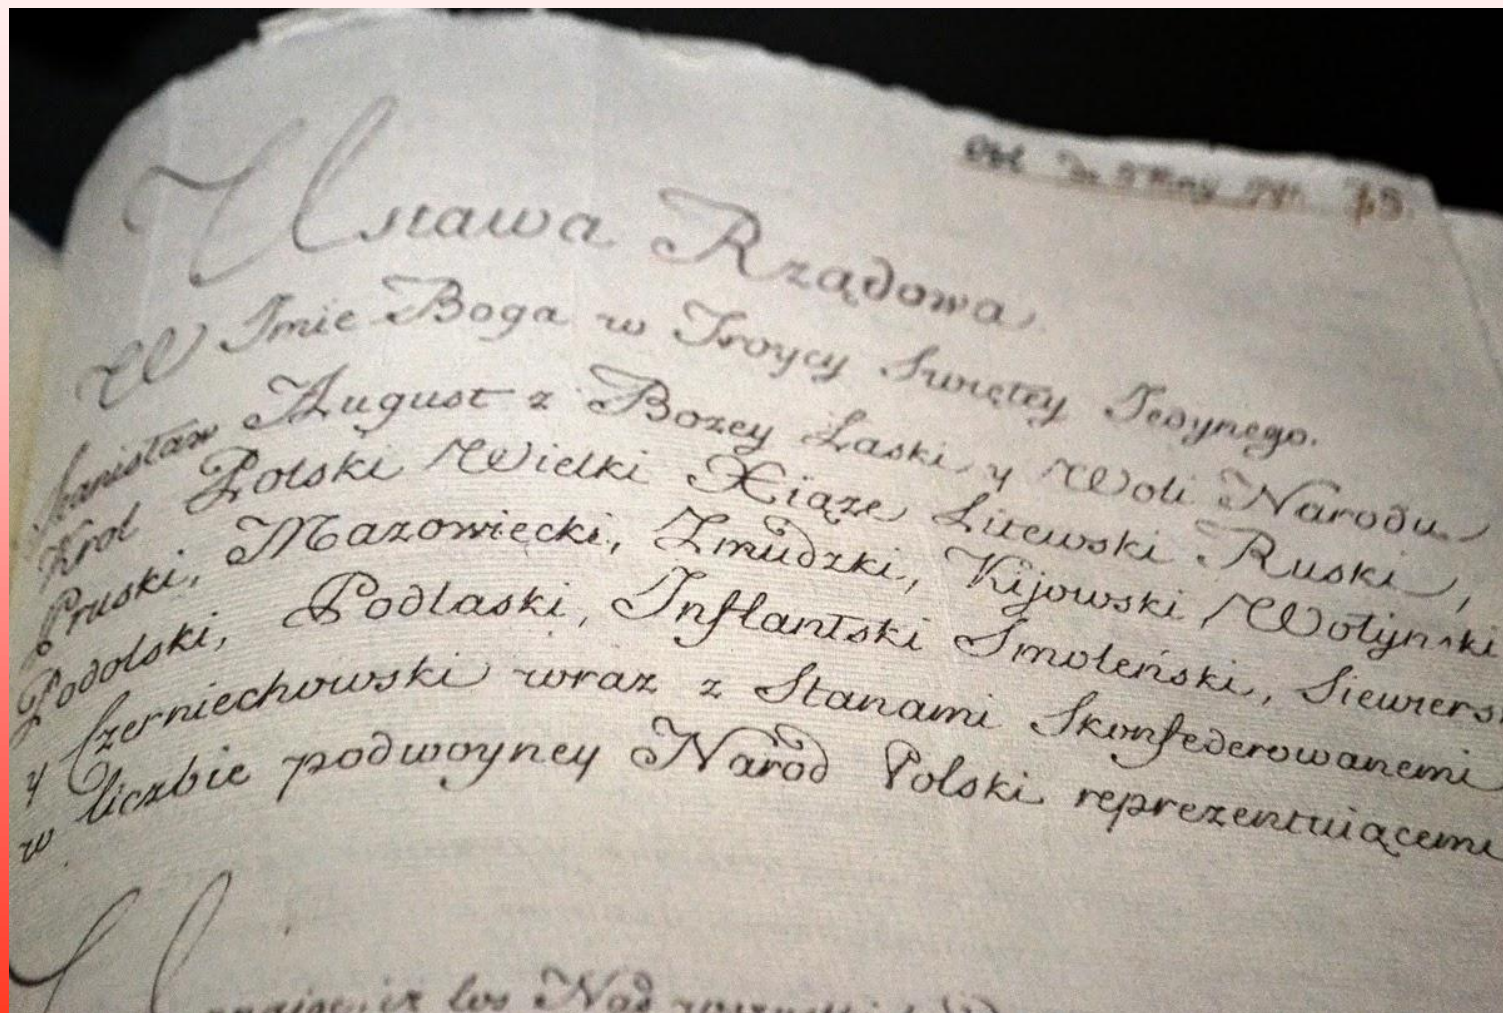 73.
Ustawa Rządowa
W Imie Boga w Troycy Swiętey Jedynego.
Stanisław August z Bozey Łaski y Woli Narodu
Krol Polski Wielki Xiąze Litewski Ruski,
Pruski, Mazowiecki, Zmudzki, Kijowski Wołynski
Podolski, Podlaski, Inflantski Smoleński, Siewiers
y Czerniechowski wraz z Stanami Skonfederowanemi
w liczbie podwoyney Narod Polski reprezentuiącemi
los